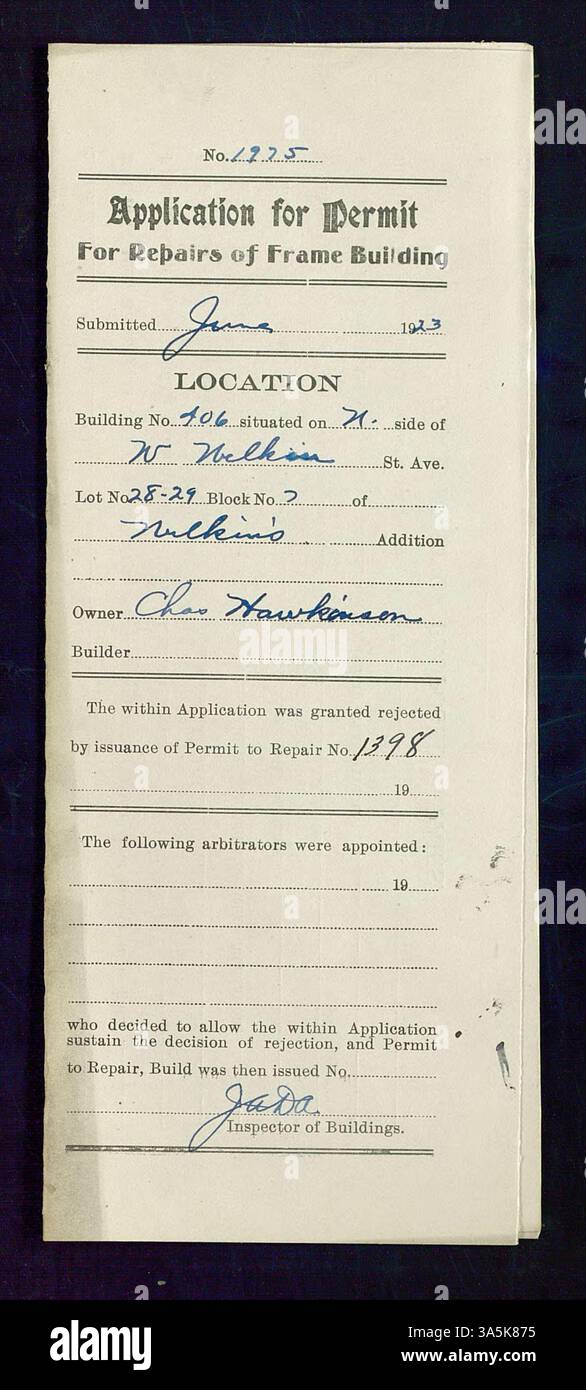 No. 1975
Application for Permit
For Repairs of Frame Building
Submitted June 1923
LOCATION
Building No. 406 situated on N. side of
W Welkin St. Ave.
Lot No 28-29 Block No. 7 of
Welkin's Addition
Owner Chas Hawkinson
Builder
The within Application was granted rejected
by issuance of Permit to Repair No. 1398
19
The following arbitrators were appointed:
19
who decided to allow the within Application
sustain the decision of rejection, and Permit
to Repair, Build was then issued No.
Inspector of Buildings.
alamy
Image ID: 3A5K875
www.alamy.com